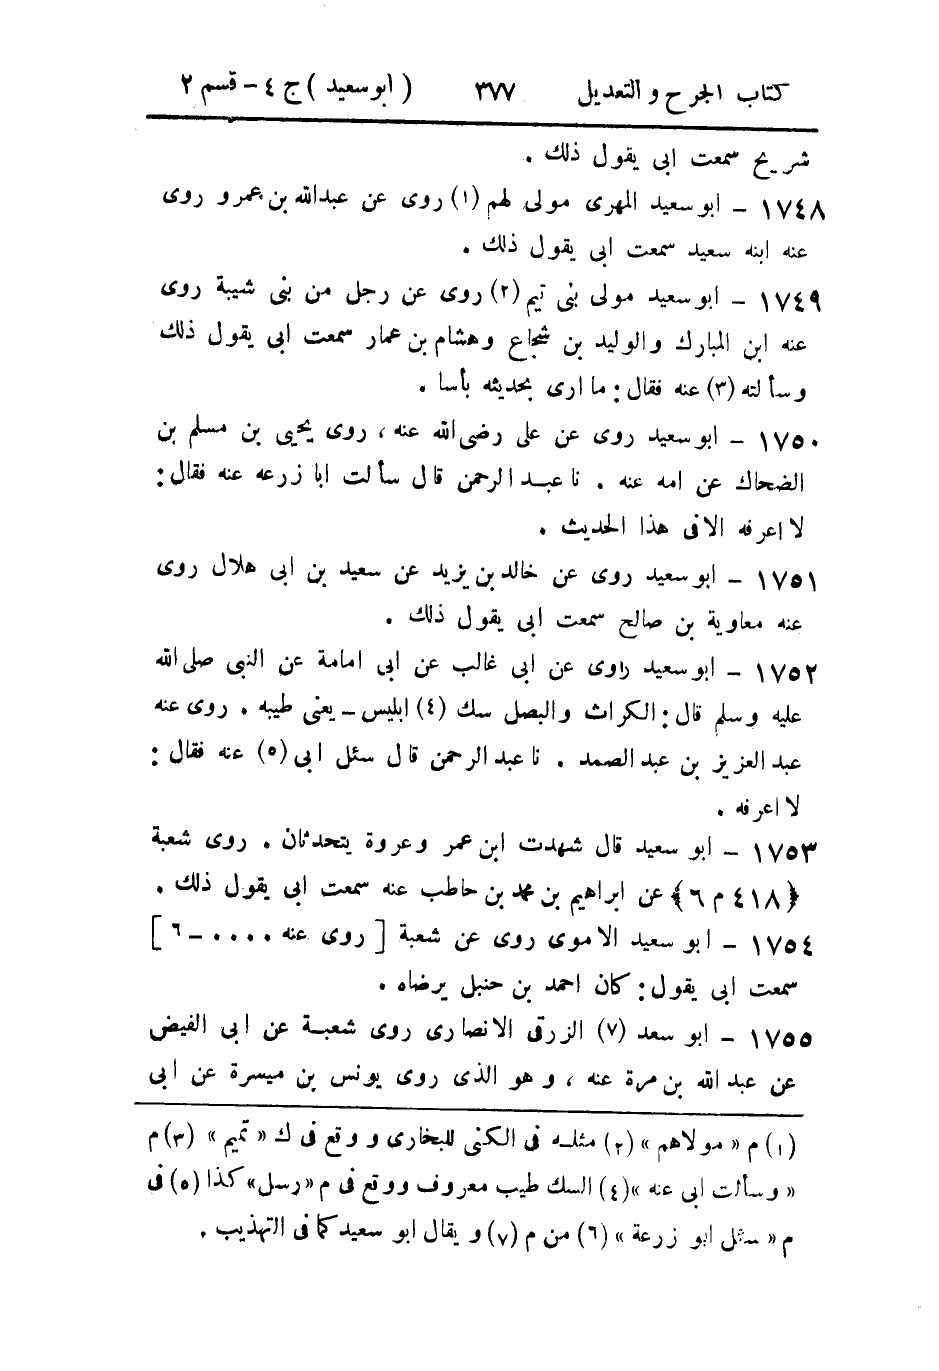 كتاب الجرح والتعديل ٣٧٧ (ابو سعيد) ج ٤ - قسم ٢
شريح سمعت ابى يقول ذلك .
١٧٤٨ - ابو سعيد المهرى مولى لهم (١) روى عن عبدالله بن عمرو روى
عنه ابنه سعيد سمعت ابى يقول ذلك .
١٧٤٩ - ابو سعيد مولى بنى تيم (٢) روى عن رجل من بنى شيبة روى
عنه ابن المبارك والوليد بن شجاع وهشام بن عمار سمعت ابى يقول ذلك
وسألته (٣) عنه فقال : ما ارى بحديثه بأسا .
١٧٥٠ - ابو سعيد روى عن على رضى الله عنه ، روى يحيى بن مسلم بن
الضحاك عن امه عنه . نا عبد الرحمن قال سألت ابا زرعه عنه فقال :
لا اعرفه الا فى هذا الحديث .
١٧٥١ - ابو سعيد روى عن خالد بن يزيد عن سعيد بن ابى هلال روى
عنه معاوية بن صالح سمعت ابى يقول ذلك .
١٧٥٢ - ابو سعيد راوى عن ابى غالب عن ابى امامة عن النبى صلى الله
عليه وسلم قال : الكراث والبصل سك (٤) ابليس - يعنى طيبه . روى عنه
عبد العزيز بن عبد الصمد . نا عبد الرحمن قال سئل ابى (٥) عنه فقال :
لا اعرفه .
١٧٥٣ - ابو سعيد قال شهدت ابن عمر وعروة يتحدثان . روى شعبة
﴿٤١٨ م ٦﴾ عن ابراهيم بن محمد بن حاطب عنه سمعت ابى يقول ذلك .
١٧٥٤ - ابو سعيد الاموى روى عن شعبة [ روى عنه .... - ٦ ]
سمعت ابى يقول : كان احمد بن حنبل يرضاه .
١٧٥٥ - ابو سعد (٧) الزرقى الانصارى روى شعبة عن ابى الفيض
عن عبد الله بن مرة عنه ، وهو الذى روى يونس بن ميسرة عن ابى
(١) م « مولاهم » (٢) مثله فى الكنى للبخارى ووقع فى ك « تميم » (٣) م
« وسألت ابى عنه » (٤) السك طيب معروف ووقع فى م «رسل» كذا (٥) فى
م « سئل ابو زرعة » (٦) من م (٧) و يقال ابو سعيد كما فى التهذيب .